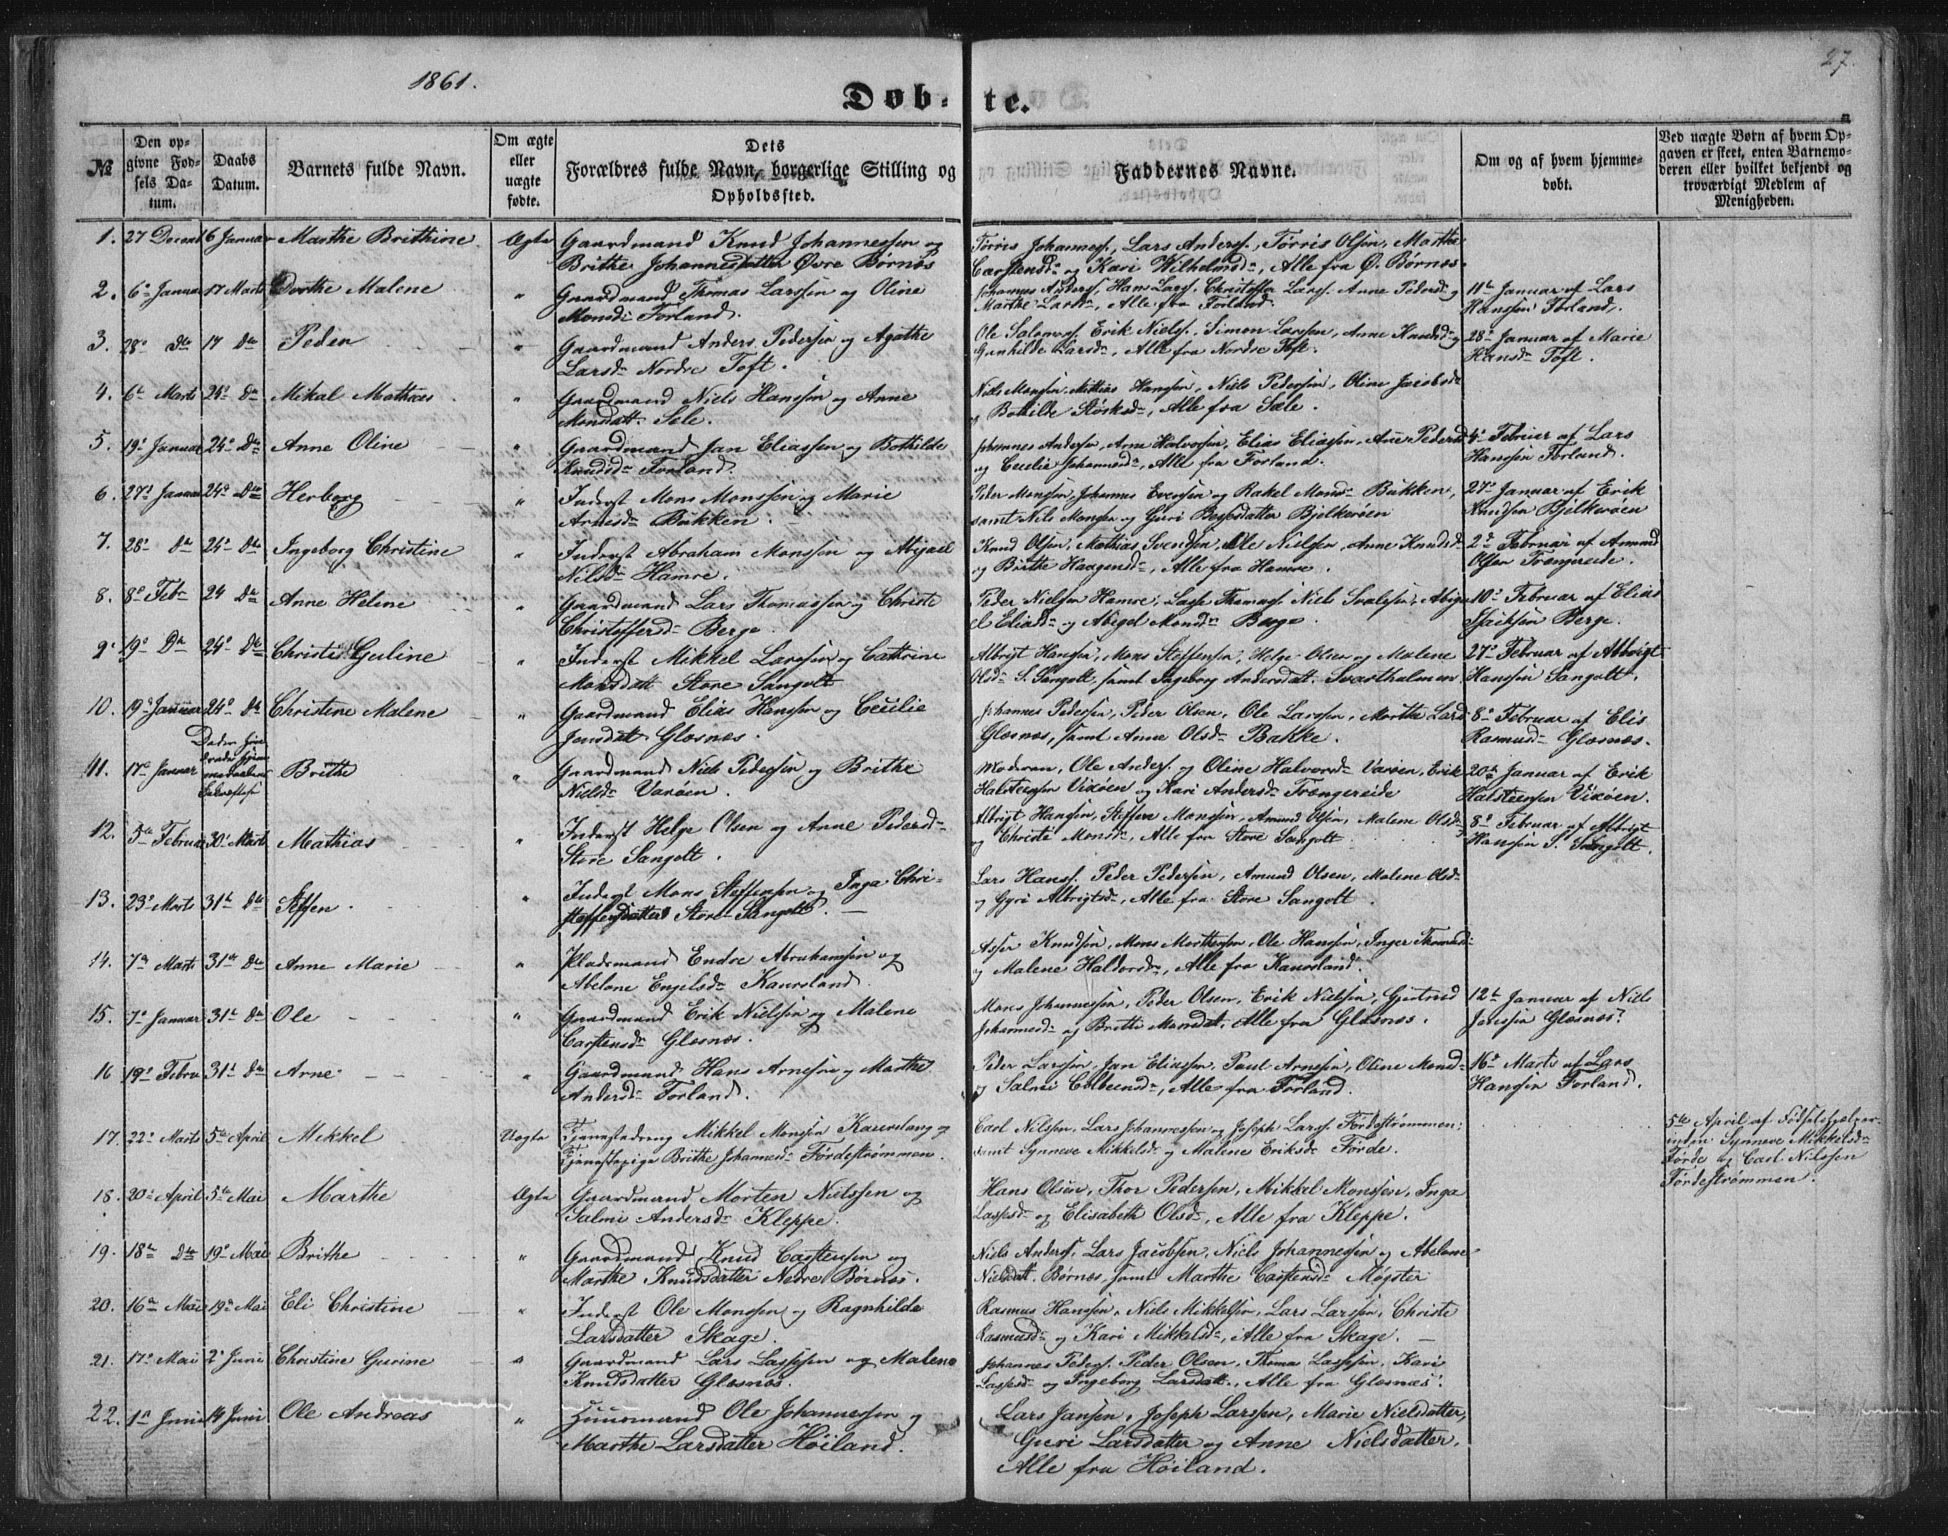 1861.
27.
Døb-te.
№
Den opgivne Fødsels Datum.
Daabs Datum.
Barnets fulde Navn.
Om ægte eller uægte fødte.
Dets Forældres fulde Navn, borgerlige Stilling og Opholdssted.
Faddernes Navne.
Om og af hvem hjemmedøbt.
Ved uægte Børn af hvem Opgaven er skeet, enten Barnemoderen eller hvilket bekjendt og troværdigt Medlem af Menigheden.
1. 27 Decemb 6 Januar Marthe Brithine Ægte Gaardmand Knud Johannessen og Tørres Johanness., Lars Anderss., Tørris Olsen, Marthe
Brithe Johannesdatter Øvre Børnøs Carstensd. og Kari Wilhelmsd., Alle fra Ø. Børnøs.
2. 6 Januar 17 Marts Dorthe Malene " Gaardmand Thomas Larssen og Oline Johannes Anderss. Hans Larss. Christoffer Larss. Anne Pedersd. og 11te Januar af Lars
Monsd. Forland. Marthe Larsd., Alle fra Forland. Hanssen Forland.
3. 28de Do 17 Do Peder " Gaardmand Anders Pedersen og Agathe Ole Salomonss. Erik Nielss. Simon Larssen, Anne Knudsd. og 28de Januar af Marie
Larsd. Nordre Toft. Gunhilde Larsd., Alle fra Nordre Toft. Hansd. Toft.
4. 6te Marts 24de Do Mikal Mathias " Gaardmand Niels Hanssen og Anne Niels Monssen Mathias Hanssen, Niels Pedersen, Oline Jacobsd.
Monsdatt. Sele. og Bothilde, Alle fra Sæle.
5. 19de Januar 24de Do Anne Oline " Gaardmand Jan Eliassen og Bothilde Johannes Andersen, Arne Halvorsen, Elias Eliassen, Anne Pedersd. 4de Februar af Lars
Knudsd. Forland. og Cecilie Johannesd., Alle fra Forland. Hanssen Forland.
6. 27de Januar 24de Do Herborg " Inderst Mons Monssen og Marie Peder Monssen, Johannes Evensen og Rakel Monsd. Bukken, 27de Januar af Erik
Arnesd. Bukken. samt Nils Monssen og Guri Bessesdatter Bjelkerøen Knudsen Bjelkerøen
7. 28de Do 24de Do Ingeborg Christine " Inderst Abraham Monssen og Abigael Knud Olsen, Mathias Svendsen, Ole Nielsen, Anne Knudsd. 2de Februar af Amund
Nilsd. Hamre. og Brithe Haagensd., Alle fra Hamre. Olsen Trængereide.
8. 8de Febr 24 Do Anne Helene " Gaardmand Lars Thomassen og Christi Peder Nielsen Hamre, Lasse Thomass. Niels, Abiga- 10de Februar af Elias
Christoffersd. Berge. el Eliasd. og Abigel Monsd. Berge Isaksen Berge.
9. 19de Do 24de Do Christi Guline " Inderst Mikkel Larssen og Cathrine Albrigt Hanssen, Mons Steffensen, Helge Olsen og Malene 27de Februar af Albrigt
Monsdatt Store Sangolt Olsd. S. Sangolt, samt Ingeborg Andersdat. Svartholmen. Hanssen Sangolt.
10. 19de Januar 24de Do Christine Malene " Gaardmand Elias Hanssen og Cecilie Johannes Pedersen, Peder Olsen, Ole Larssen, Marthe Larsd. 8de Februar af Elis
Jensdatt Glæsnæs. Glæsnæs, samt Anne Olsd. Bakke. Rasmusd. Glæsnæs.
11. 17de Januar Brithe " Gaardmand Niels Pedersen og Brithe Moderen, Ole Anderss. og Oline Halvorsd. Varøen, Erik 20de Januar af Erik
Nielsd. Varøen. Halsteensen Vixøen og Kari Andersd. Trængereide Halsteensen Vixøen.
12. 5te Februar 30 Marts Mathias " Inderst Helge Olsen og Anne Pedersd. Albrigt Hanssen, Steffen Monssen, Amund Olsen, Malene Olsd. 8de Februar af Albrigt
Store Sangolt. og Christi Monsd., Alle fra Store Sangolt Hanssen S. Sangolt.
13. 23de Marts 31te Do Steffen. " Inderst Mons Steffensen og Inga Chri- Lars Hanss. Peder Pedersen, Amund Olsen, Malene Olsd.
stoffersdatter Store Sangolt. og Gyri Albrigtsd., Alle fra Store Sangolt.
14. 7de Marts 31te Do Anne Marie " Pladsmand Endre Abrahamsen og Asser Knudsen, Mons Mortensen, Ole Hanssen, Inger Thomasd.
Abelone Engelsd. Kaursland. og Malene Haldorsd., Alle fra Kaursland.
15. 7de Januar 31te Do Ole " Gaardmand Erik Nielsen og Malene Mons Johannessen, Peder Olsen, Erik Nielsen, Gjertrud 12te Januar af Niels
Carstensd. Glæsnæs. Johannesd. og Brithe Monsdat., Alle fra Glæsnæs. Jenssen Glæsnæs.
16 19de Febru 31te Do Arne " Gaardmand Hans Arnesen og Marthe Peder Larssen, Jan Eliassen, Paul Arnessen, Oline Monsd. 16de Marts af Lars
Andersd. Forland. og Salmi Colbeensd., Alle fra Forland. Hanssen Forland.
17. 22de Marts 5te April Mikkel Uægte Tjenestedreng Mikkel Monssen Kaursland og Carl Nilssen, Lars Johannessen og Joseph Larss. Førdestrømmen, 5te April af Fødselshjelper-
Tjenestepige Brithe Johannesd. Førdestrømmen. samt Synneve Mikkelsd. og Malene Eriksd. Førde. inden Synneve Mikkelsd.
Førde og Carl Nilssen
Førdestrømmen.
18. 20de April 5te Mai Marthe Ægte Gaardmand Morten Nielssen og Hans Olsen, Thor Pedersen, Mikkel Monssen, Inga
Salmi Andersd. Kleppe. Lassesd. og Elisabeth Olsd., Alle fra Kleppe.
19. 18de Do 19de Mai Brithe " Gaardmand Knud Carstensen og Niels Anderss, Lars Jacobsen, Niels Johannessen og Abelone
Marthe Knudsdatter Nedre Børnøs. Nielsdatt. Børnøs, samt Marthe Carstensd. Møgster
20. 16de Mai 19de Mai Eli Christine " Inderst Ole Monssen og Ragnhilde Rasmus Hanssen, Niels Mikkelsen, Lars Larssen, Christi
Larsdatter Skage. Rasmusd. og Kari Mikkelsd., Alle fra Skage.
21. 17de Mai 2de Juni Christine Gurine " Gaardmand Lars Lassesen og Malene Johannes Pederss. Peder Olsen, Thomas Lassesen, Kari
Knudsdatter Glæsnæs. Lassesd. og Ingeborg Larsdatt., Alle fra Glæsnæs.
22. 1ste Juni 14 Juni Ole Andreas " Huusmand Ole Johannessen og Lars Jansen, Joseph Larssen, Marie Nielsdatter,
Marthe Larsdatter Høiland. Guri Larsdatter og Anne Nielsdatter,
Alle fra Høiland.